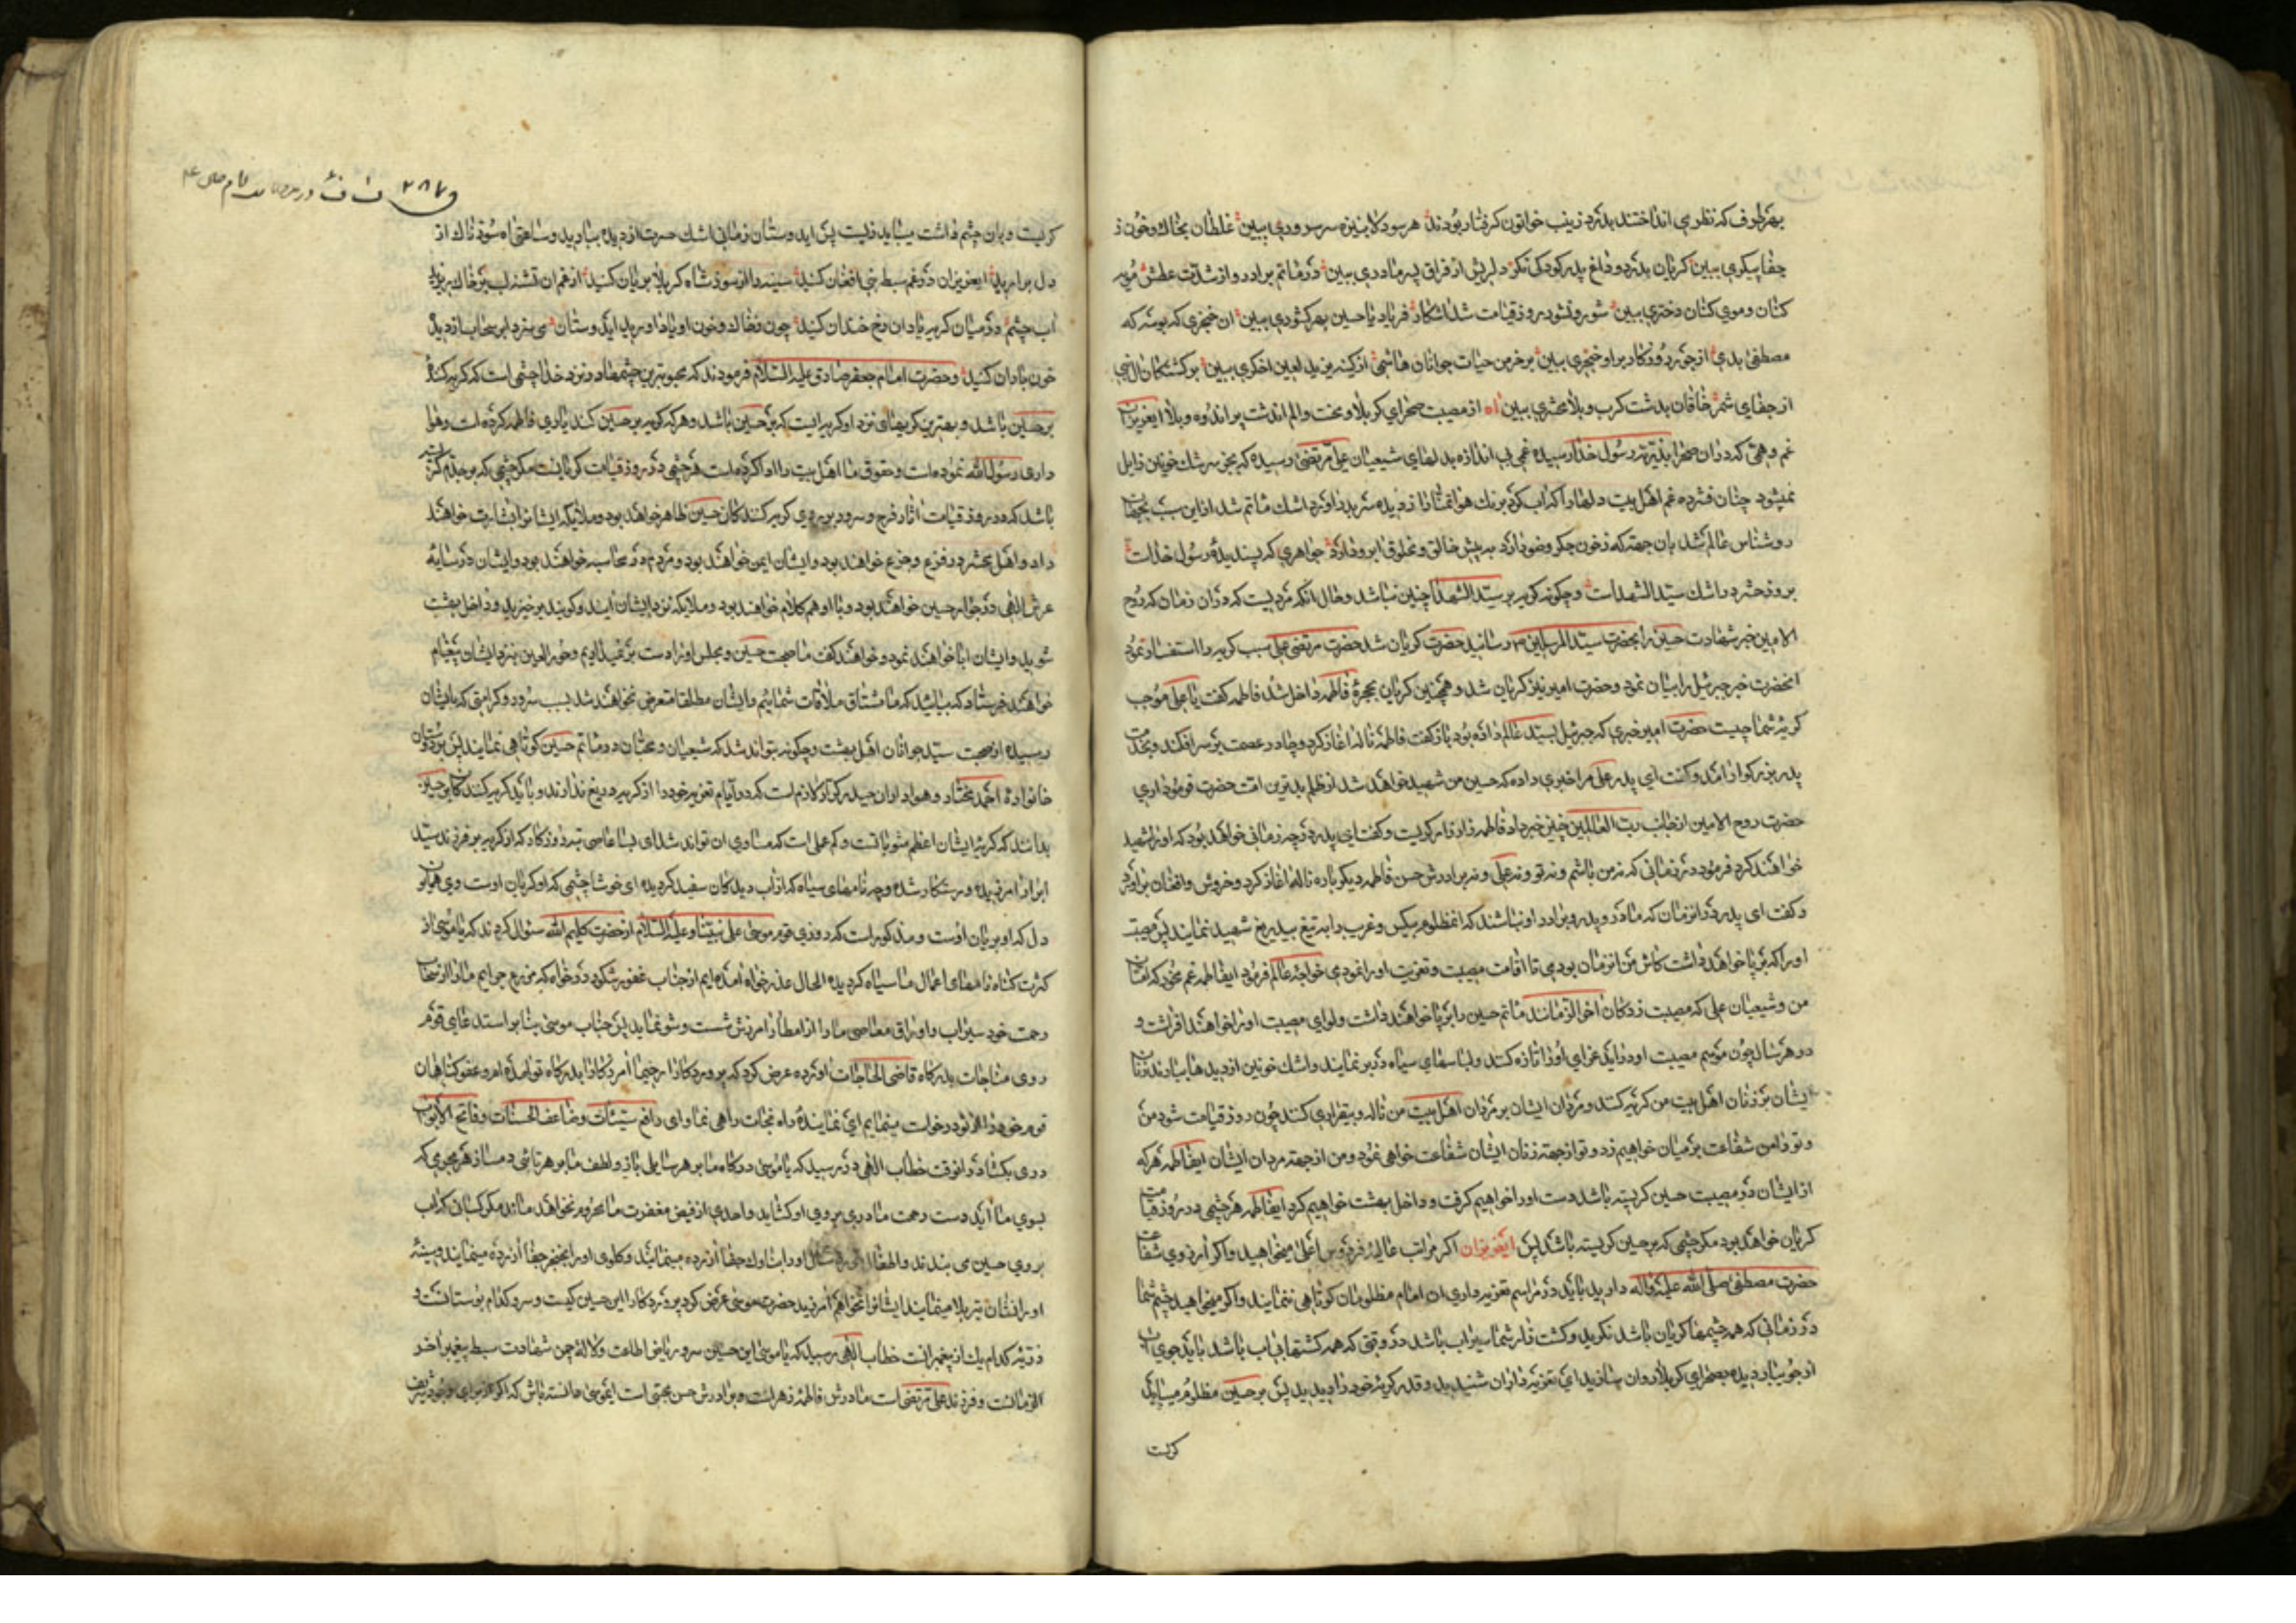 بهر طرف که نظری انداختند بدرد زینب خواتون گرفتار بودند هر سو کلا بنیزه سر سروری ببین غلطان بخاک و خون ز
جفا پیکری ببین گریان بدرد و داغ پدر کودکی نکر دلریش از فراق پسر مادری ببین در ماتم برادر و از شدت عطش مویه
کنان و موی کنان دختری ببین شور نشور روز قیامت شد اشکار فریاد یا حسین بهر کشوری ببین ان حنجری که بوسه که
مصطفی بدی از جور روزکار بر او خنجری ببین بر خرمن حیات جوانان هاشمی از کینه یزید لعین اخکری ببین بر کشتکان ال نبی
از جفای شمر خاقان بدشت کرب و بلا محشری ببین اه از مصیبت صحرای کربلا و محنت و الم اندشت پر اندوه و بلا ایعزیزان
غم و همی که در ان صحرا بذریه رسول خدا رسیده غمی بی اندازه بدلهای شیعیان علی مرتضی رسیده که بجز سرشک خونین زایل
نمیشود چنان فشرده غم اهل بیت دلها را کز اب کرد برنک هوا تمنا را ز دیده سر بدر اورد اشک ماتم شد ازین سبب بجهان
روشناس عالم شد بان جهة که ز خون جکر وضو دارد به پیش خالق و مخلوق ابرو دارد جواهری که پسندیده رسول خداست
بروز حشر در اشک سید الشهداست و چکونه کریه بر سید الشهدا چنین نباشد و حال انکه مرویست که در ان زمان که روح
الامین خبر شهادت حسین را بحضرت سید المرسلین رسانید حضرت کریان شد حضرت مرتضی علی سبب کریه را استفسار نمود
انحضرت خبر جبرئیل را بیان نمود و حضرت امیر نیز کریان شد و همچنین کریان بحجرۀ فاطمه داخل شد فاطمه کفت یا علی موجب
کریۀ شما چیست حضرت امیر خبری که جبرئیل بسید عالم داده بود باز کفت فاطمه ناله اغاز کرد و چادر عصمت بر سر افکند و بخدمت
پدر بزرکوار امد و کفت ای پدر علی مرا خبری داده که حسین من شهید خواهد شد از ظلم بدترین امت حضرت فرمود اری
حضرت روح الامین از جانب رب العالمین چنین خبر داد فاطمه زار زار کریست و کفت ای پدر در چه زمانی خواهد بود که او را شهید
خواهند کرد فرمود در زمانی که نه من باشم و نه تو و نه علی و نه برادرش حسن فاطمه دیکر باره ناله اغاز کرد و خروش و افغان براورد
و کفت ای پدر در انزمان که مادر و پدر و برادر او نباشند که انمظلوم بیکس و غریب را به تیغ بیدریغ شهید نمایند پس مصیبت
او را که بر پا خواهد داشت کاش من انزمان بودی تا اقامت مصیبت و تعزیت او را نمودی خواجه عالم فرمود ایفاطمه غم مخور که امتان
من و شیعیان علی که مصیبت زدکان اخر الزمانند ماتم حسین را بر پا خواهند داشت و لوای مصیبت او را خواهند افراشت و
در هر سال چون موسم مصیبت او در اید عزای او را تازه کنند و لباسهای سیاه در بر نمایند و اشک خونین از دیدها ببارند زنان
ایشان بر زنان اهل بیت من کریه کنند و مردان ایشان بر مردان اهل بیت من ناله و بیقراری کنند چون روز قیامت شود من
و تو دامن شفاعت بر میان خواهیم زد و تو از جهة زنان ایشان شفاعت خواهی نمود و من از جهة مردان ایشان ایفاطمه هر که
از ایشان در مصیبت حسین کریسته باشد دست او را خواهیم کرفت و داخل بهشت خواهیم کرد ایفاطمه هر چشمی در روز قیامت
کریان خواهد بود مکر چشمی که بر حسین کریسته باشد پس ایعزیزان اکر مراتب عالیۀ فردوس اعلی میخواهید و اکر ارزوی شفاعت
حضرت مصطفی صلی الله علیه و اله دارید باید در مراسم تعزیه داری ان امام مظلومان کوتاهی ننمایند و اکر میخواهید چشم شما
در زمانی که همه چشمها کریان باشد نکرید و کشت فلر شما سیراب باشد در وقتی که همه کشتها بی اب باشد باید جوی
از جویبار دیده بصحرای کربلا روان سازید ای تعزیه داران شنیدید و قدر کریۀ خود را دیدید پس بر حسین مظلوم میباید
کریست
و ٢٨٧
کریست و بان چشم داشت میباید زیست پس اید وستان زمانی اشک حسرت از دیده ببارید و ساعتی اه سوزناک از
دل برارید ایعزیزان در غم سبط نبی افغان کنید سینه را از سوز شاه کربلا بریان کنید از غم ان تشنه لب بر خاک ریزید
اب چشم و در میان کریه یاد ان رخ خندان کنید چون ز خاک و خون او یاد اورید ایدوستان می سزد ابر سحاب از دیدۀ
خون باران کنید و حضرت امام جعفر صادق علیه السلام فرمودند که محبوبترین چشمها در نزد خدا چشمی است که کریه کنندۀ
بر حسین باشد و بهترین کریهای نزد او کریه ایست که بر حسین باشد و هر که کریه بر حسین کند یاری فاطمه کرده است و هوا
داری رسول الله نموده است و حقوق ما اهل بیت را ادا کرده است هر چشمی در روز قیامت کریانست مکر چشمی که بر جدم کریسته
باشد که در روز قیامت اثار فرح و سرور بر روی کریه کنندکان حسین ظاهر خواهد بود و ملایکه ایشانرا بشارت خواهند
داد و اهل محشر در فزع و جزع خواهند بود و ایشان ایمن خواهند بود و مردم در محاسبه خواهند بود و ایشان در سایۀ
عرش الهی در جوار حسین خواهند بود و با او هم کلام خواهند بود و ملایکه نزد ایشان ایند و کویند برخیزید و داخل بهشت
شوید و ایشان ابا خواهند نمود و خواهند کفت ما صحبت حسین و مجلس او را دست بر نمیداریم و حور العین بنزد ایشان پیغام
خواهند فرستاد که بیائید که ما مشتاق ملاقات شمائیم و ایشان مطلقا متعرض نخواهند شد بسبب سرور و کرامتی که بایشان
رسیده از صحبت سید جوانان اهل بهشت و چکونه بتواند شد که شیعیان و محبان در ماتم حسین کوتاهی نمایند پس بر دوستان
خانوادۀ احمد مختار و هواداران حیدر کرار لازم است که در ایام تعزیه خود را از کریه دریغ ندارند و باید کریه کنندکان بر حسین
بدانند که کریۀ ایشان اعظم مثوباتست و کم عملی است که مساوی ان تواند شد ای بسا عاصی تبه روزکار که از کریه بر فرزند سید
ابرار امرزیده و رستکار شده و چه نامهای سیاه که از اب دیدکان سفید کردیده ای خوشا چشمی که او کریان اوست وی همایون
دل که او بریان اوست و مذکور است که روزی قوم موسی علی نبینا و علیه السلام از حضرت کلیم الله سئوال کردند که یا موسی از
کثرت کناه نامهای اعمال ما سیاه کردیده الحال عذر خواه امده ایم از جناب غفور شکور در خواه که مزرع جرایم ما را از سحاب
رحمت خود سیراب و اوراق معاصی ما را از امطار امرزش شست و شو نماید پس جناب موسی بنا بر استدعای قوم
روی مناجات بدرکاه قاضی الحاجات اورده عرض کرد که پروردکارا رحیما امرزکارا بدرکاه تو امده ام و عفو کناهان
قوم خود را از تو درخواست مینمایم ای نمایندۀ راه نجات راهی نما و ای رافع سیئات و مضاعف الحسنات و فاتح الابواب
دری بکشا در انوقت خطاب الهی در رسید که یا موسی درکاه ما بر هر سایلی باز و لطف ما بر هر ناشی دمساز هر مجرمی که
بسوی ما اید دست رحمت ما دری بروی او کشاید و احدی از فیض مغفرت ما محروم نخواهد ماند مکر کسان که اب
بروی حسین می بندند و اطفال خورد سال او را بناوک جفا ازرده مینمایند و کلوی او را بخنجر جفا ازرده مینمایند و سینۀ
او را نشان تیر بلا مینمایند ایشانرا نخواهم امرزید حضرت موسی عرض کرد پروردکارا این حسین کیست و سرو کدام بوستانست و
ذریۀ کدام یک از پیغمبرانست خطاب الهی رسید که یا موسی این حسین سرو ریاض اطاعت و لالۀ چمن شهادت سبط پیغمبر اخر
الزمانست و فرزند علی مرتضی است مادرش فاطمۀ زهراست و برادرش حسن مجتبی است ایموسی دانسته باش که اکر